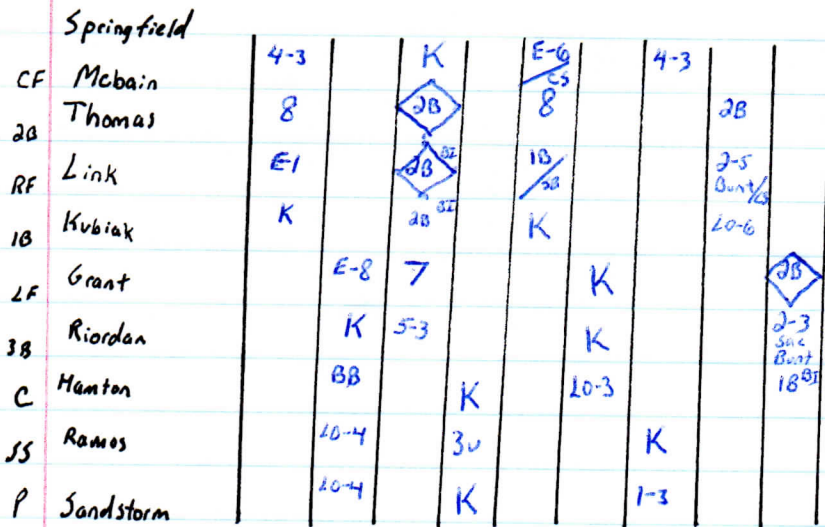 Springfield
CF Mcbain 4-3 K E-6/CS 4-3
2B Thomas 8 2B 8 2B
RF Link E-1 2B BI 1B/SB 2-5 Bunt/CS
1B Kubiak K 2B BI K LO-6
LF Grant E-8 7 K 2B
3B Riordan K 5-3 K 2-3 Sac Bunt
C Hamton BB K LO-3 1B BI
SS Ramos LO-4 3U K
P Sandstorm LO-4 K 1-3